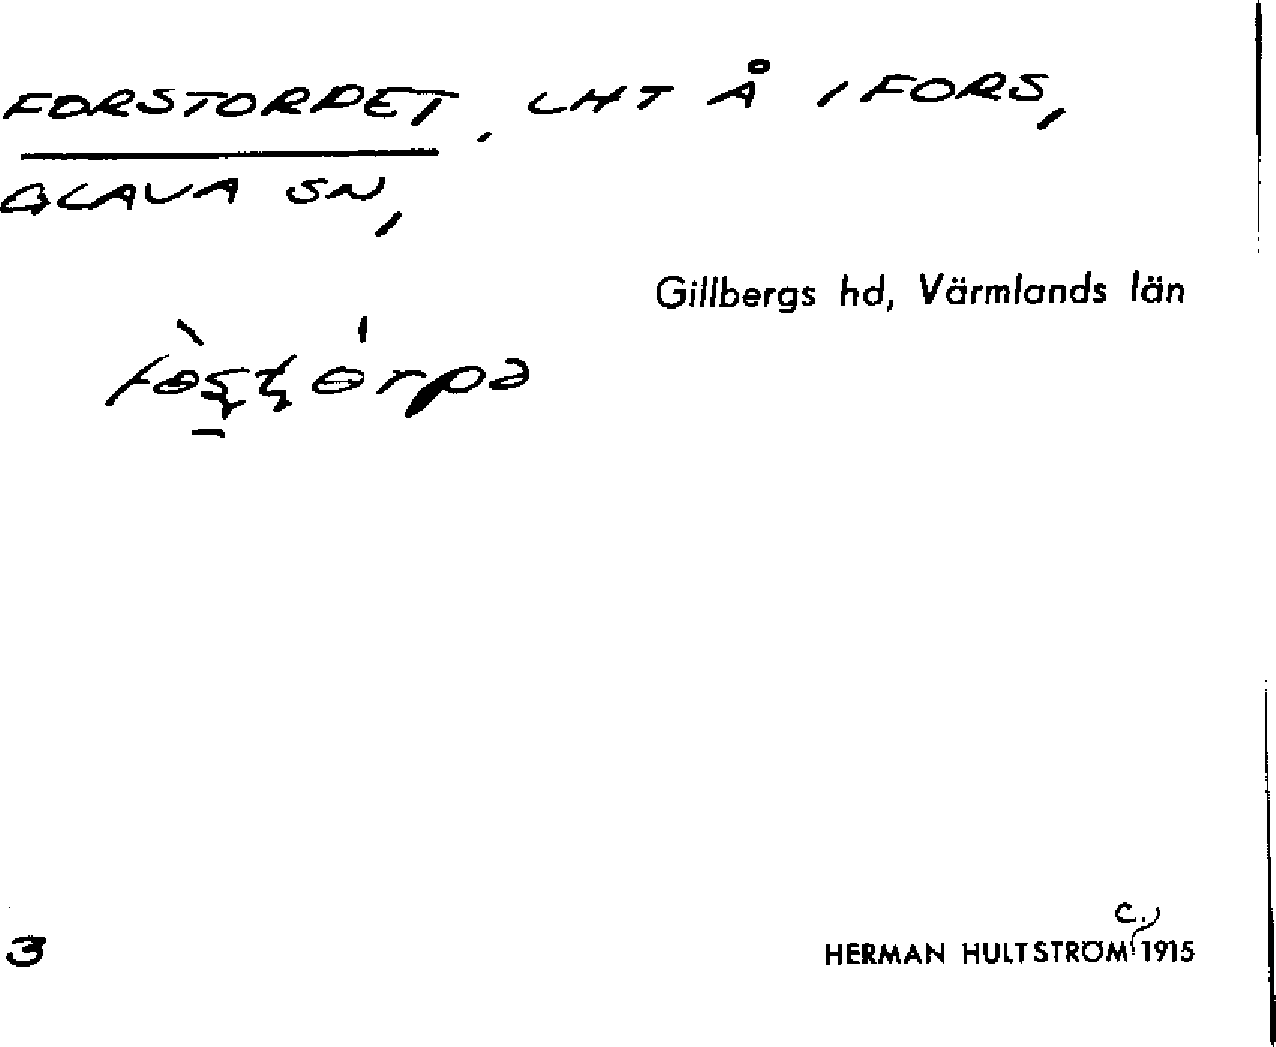 FORSTORPET, LHT Å 1 FORS,
GLAVA SN,
Gillbergs hd, Värmlands län
3
c.,
HERMAN HULTSTRÖM 1915